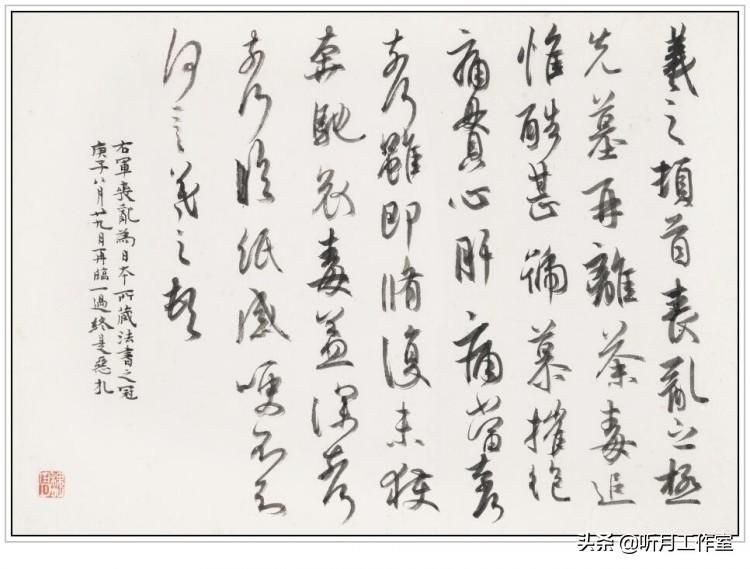 羲之頓首喪亂之極
先墓再離荼毒追
惟酷甚號慕摧絕
痛貫心肝痛當奈何
奈何雖即脩復未獲
奔馳哀毒益深奈何
奈何臨紙感哽不知
何言羲之頓首
右軍喪亂為日本所藏法書之冠
庚子八月廿九日再臨一過終是惡札
头条 @听月工作室